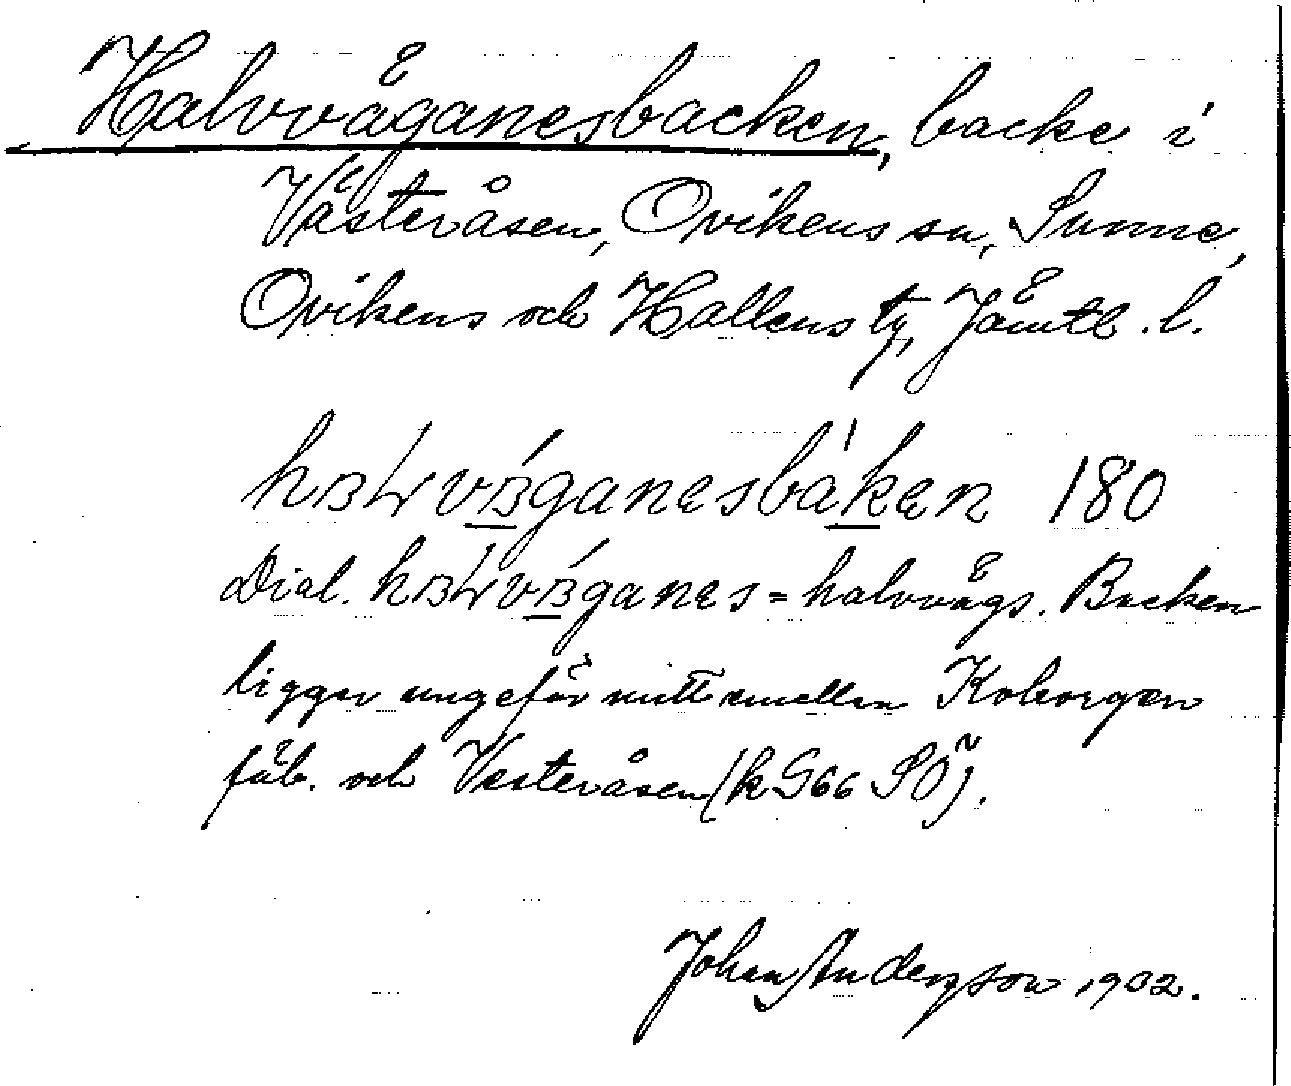 Halvvåganesbacken, backe i
Västeråsen, Ovikens sn, Sunne,
Ovikens och Hallens tg, Jämtl. l.
180
Dial. = halvvägs. Backen
ligger ungefär mitt emellan Koborgen
fäb. och Vesteråsen (k G66 SÖ).
Johan Anderson 1902.